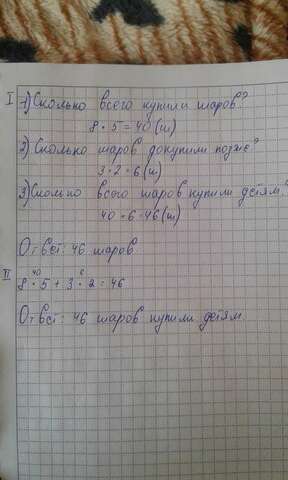 I 1) Сколько всего купили шаров?
8 · 5 = 40 (ш)
2) Сколько шаров докупили позже?
3 · 2 = 6 (ш)
3) Сколько всего шаров купили детям?
40 + 6 = 46 (ш)
Ответ: 46 шаров
II 40 6
8 · 5 + 3 · 2 = 46
Ответ: 46 шаров купили детям.